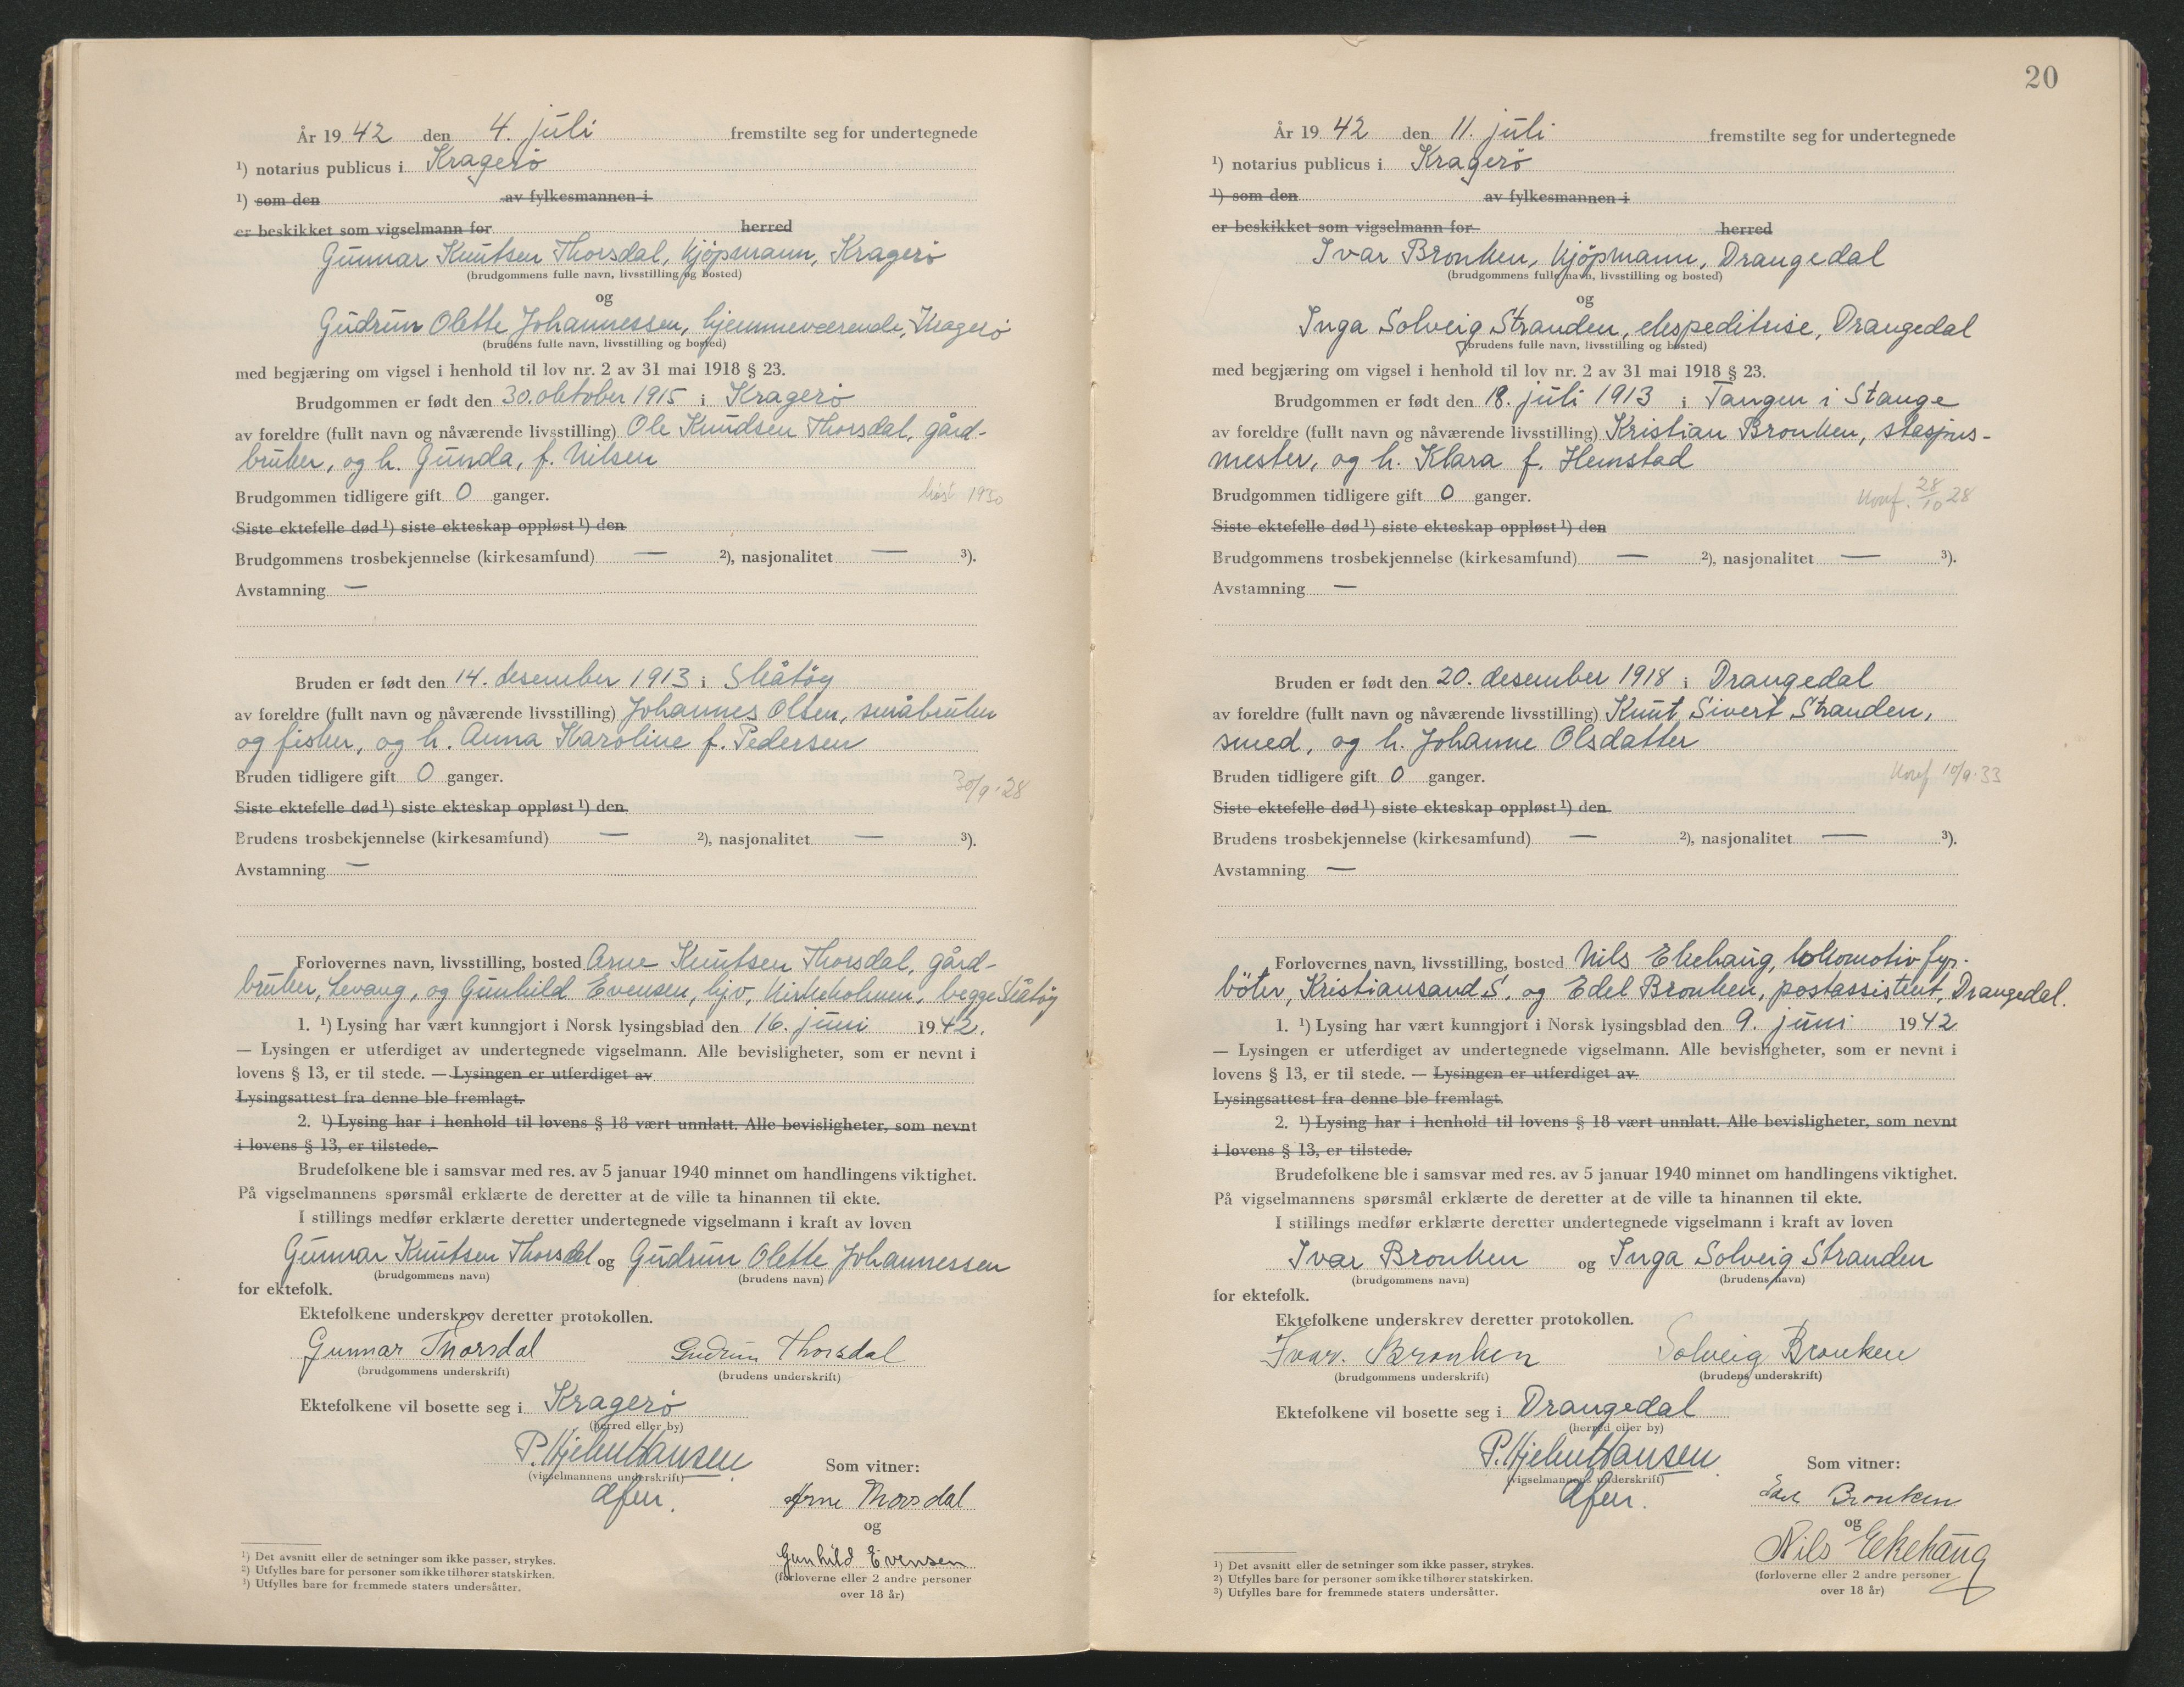 År 1942 den 4. juli fremstilte seg for undertegnede
¹) notarius publicus i Kragerö
¹) som den av fylkesmannen i
er beskikket som vigselmann for herred
Gunnar Knutsen Thorsdal, kjøpmann, Kragerö
(brudgommens fulle navn, livsstilling og bosted)
og
Gudrun Olette Johannessen, hjemmeværende, Kragerö
(brudens fulle navn, livsstilling og bosted)
med begjæring om vigsel i henhold til lov nr. 2 av 31 mai 1918 § 23.
Brudgommen er født den 30. oktober 1915 i Kragerö
av foreldre (fullt navn og nåværende livsstilling) Ole Knudsen Thorsdal, gård-
bruker, og h. Gunda, f. Nilsen
Brudgommen tidligere gift 0 ganger. høst 1930
Siste ektefelle død ¹) siste ekteskap oppløst ¹) den
Brudgommens trosbekjennelse (kirkesamfund) — ²), nasjonalitet — ³).
Avstamning —
Bruden er født den 14. desember 1913 i Skåtöy
av foreldre (fullt navn og nåværende livsstilling) Johannes Olsen, småbruker
og fisker, og h. Anna Karoline f. Pedersen
Bruden tidligere gift 0 ganger. 30/9-28
Siste ektefelle død ¹) siste ekteskap oppløst ¹) den
Brudens trosbekjennelse (kirkesamfund) — ²), nasjonalitet — ³).
Avstamning —
Forlovernes navn, livsstilling, bosted Arne Knutsen Thorsdal, gård-
bruker, Levang, og Gunhild Evensen, hjv, Kirkeholmen, begge Skåtöy
1. ¹) Lysing har vært kunngjort i Norsk lysingsblad den 16. juni 1942.
— Lysingen er utferdiget av undertegnede vigselmann. Alle bevisligheter, som er nevnt i
lovens § 13, er til stede. — Lysingen er utferdiget av
Lysingsattest fra denne ble fremlagt.
2. ¹) Lysing har i henhold til lovens § 18 vært unnlatt. Alle bevisligheter, som nevnt
i lovens § 13, er tilstede.
Brudefolkene ble i samsvar med res. av 5 januar 1940 minnet om handlingens viktighet.
På vigselmannens spørsmål erklærte de deretter at de ville ta hinannen til ekte.
I stillings medfør erklærte deretter undertegnede vigselmann i kraft av loven
Gunnar Knutsen Thorsdal og Gudrun Olette Johannessen
(brudgommens navn) (brudens navn)
for ektefolk.
Ektefolkene underskrev deretter protokollen.
Gunnar Thorsdal Gudrun Thorsdal
(brudgommens underskrift) (brudens underskrift)
Ektefolkene vil bosette seg i Kragerö
(herred eller by)
P. Hjelm Hansen
(vigselmannens underskrift) Som vitner:
Arne Thorsdal
og
Gunhild Evensen
(forloverne eller 2 andre personer
over 18 år)
¹) Det avsnitt eller de setninger som ikke passer, strykes.
²) Utfylles bare for personer som ikke tilhører statskirken.
³) Utfylles bare for fremmede staters undersåtter.
20
År 1942 den 11. juli fremstilte seg for undertegnede
¹) notarius publicus i Kragerö
¹) som den av fylkesmannen i
er beskikket som vigselmann for herred
Ivar Bronken, kjøpmann, Drangedal
(brudgommens fulle navn, livsstilling og bosted)
og
Inga Solveig Stranden, ekspeditrise, Drangedal
(brudens fulle navn, livsstilling og bosted)
med begjæring om vigsel i henhold til lov nr. 2 av 31 mai 1918 § 23.
Brudgommen er født den 18. juli 1913 i Tangen i Stange
av foreldre (fullt navn og nåværende livsstilling) Kristian Bronken, stasjons-
mester, og h. Klara f. Hemstad
Brudgommen tidligere gift 0 ganger. Konf. 28/10 28
Siste ektefelle død ¹) siste ekteskap oppløst ¹) den
Brudgommens trosbekjennelse (kirkesamfund) — ²), nasjonalitet — ³).
Avstamning —
Bruden er født den 20. desember 1918 i Drangedal
av foreldre (fullt navn og nåværende livsstilling) Knut Sivert Stranden,
smed, og h. Johanne Olsdatter
Bruden tidligere gift 0 ganger. Konf 10/9-33
Siste ektefelle død ¹) siste ekteskap oppløst ¹) den
Brudens trosbekjennelse (kirkesamfund) — ²), nasjonalitet — ³).
Avstamning —
Forlovernes navn, livsstilling, bosted Nils Ekehaug, lokomotivfyr-
böter, Kristiansand S. og Edel Bronken, postassistent, Drangedal.
1. ¹) Lysing har vært kunngjort i Norsk lysingsblad den 9. juni 1942
— Lysingen er utferdiget av undertegnede vigselmann. Alle bevisligheter, som er nevnt i
lovens § 13, er til stede. — Lysingen er utferdiget av
Lysingsattest fra denne ble fremlagt.
2. ¹) Lysing har i henhold til lovens § 18 vært unnlatt. Alle bevisligheter, som nevnt
i lovens § 13, er tilstede.
Brudefolkene ble i samsvar med res. av 5 januar 1940 minnet om handlingens viktighet.
På vigselmannens spørsmål erklærte de deretter at de ville ta hinannen til ekte.
I stillings medfør erklærte deretter undertegnede vigselmann i kraft av loven
Ivar Bronken og Inga Solveig Stranden
(brudgommens navn) (brudens navn)
for ektefolk.
Ektefolkene underskrev deretter protokollen.
Ivar. Bronken Solveig Bronken
(brudgommens underskrift) (brudens underskrift)
Ektefolkene vil bosette seg i Drangedal
(herred eller by)
P. Hjelm Hansen
(vigselmannens underskrift) Som vitner:
Edel Bronken
og
Nils Ekehaug
(forloverne eller 2 andre personer
over 18 år)
¹) Det avsnitt eller de setninger som ikke passer, strykes.
²) Utfylles bare for personer som ikke tilhører statskirken.
³) Utfylles bare for fremmede staters undersåtter.